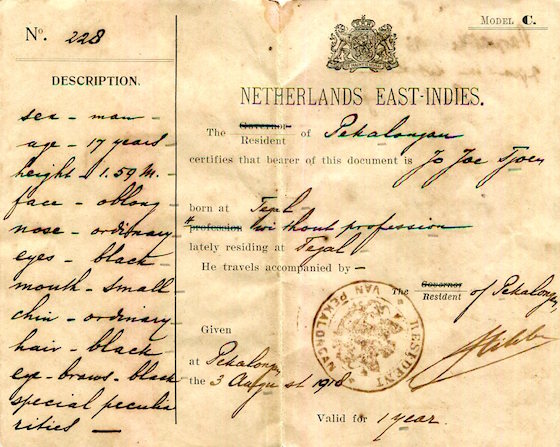 Nº. 228
DESCRIPTION.
sex - man -
age - 17 years -
height - 1.59 M. -
face - oblong -
nose - ordinary -
eyes - black -
mouth - small -
chin - ordinary -
hair - black -
eye-brows - black -
special peculia
rities —
MODEL C.
NETHERLANDS EAST-INDIES.
The Governor Resident of Pekalongan
certifies that bearer of this document is Jo Joe Tjoen
born at Tegal -
* profession without profession
lately residing at Tegal -
He travels accompanied by —
The Governor Resident of Pekalongan
RESIDENT VAN PEKALONGAN
Given
at Pekalongan
the 3 August 1918
Valid for 1 year.